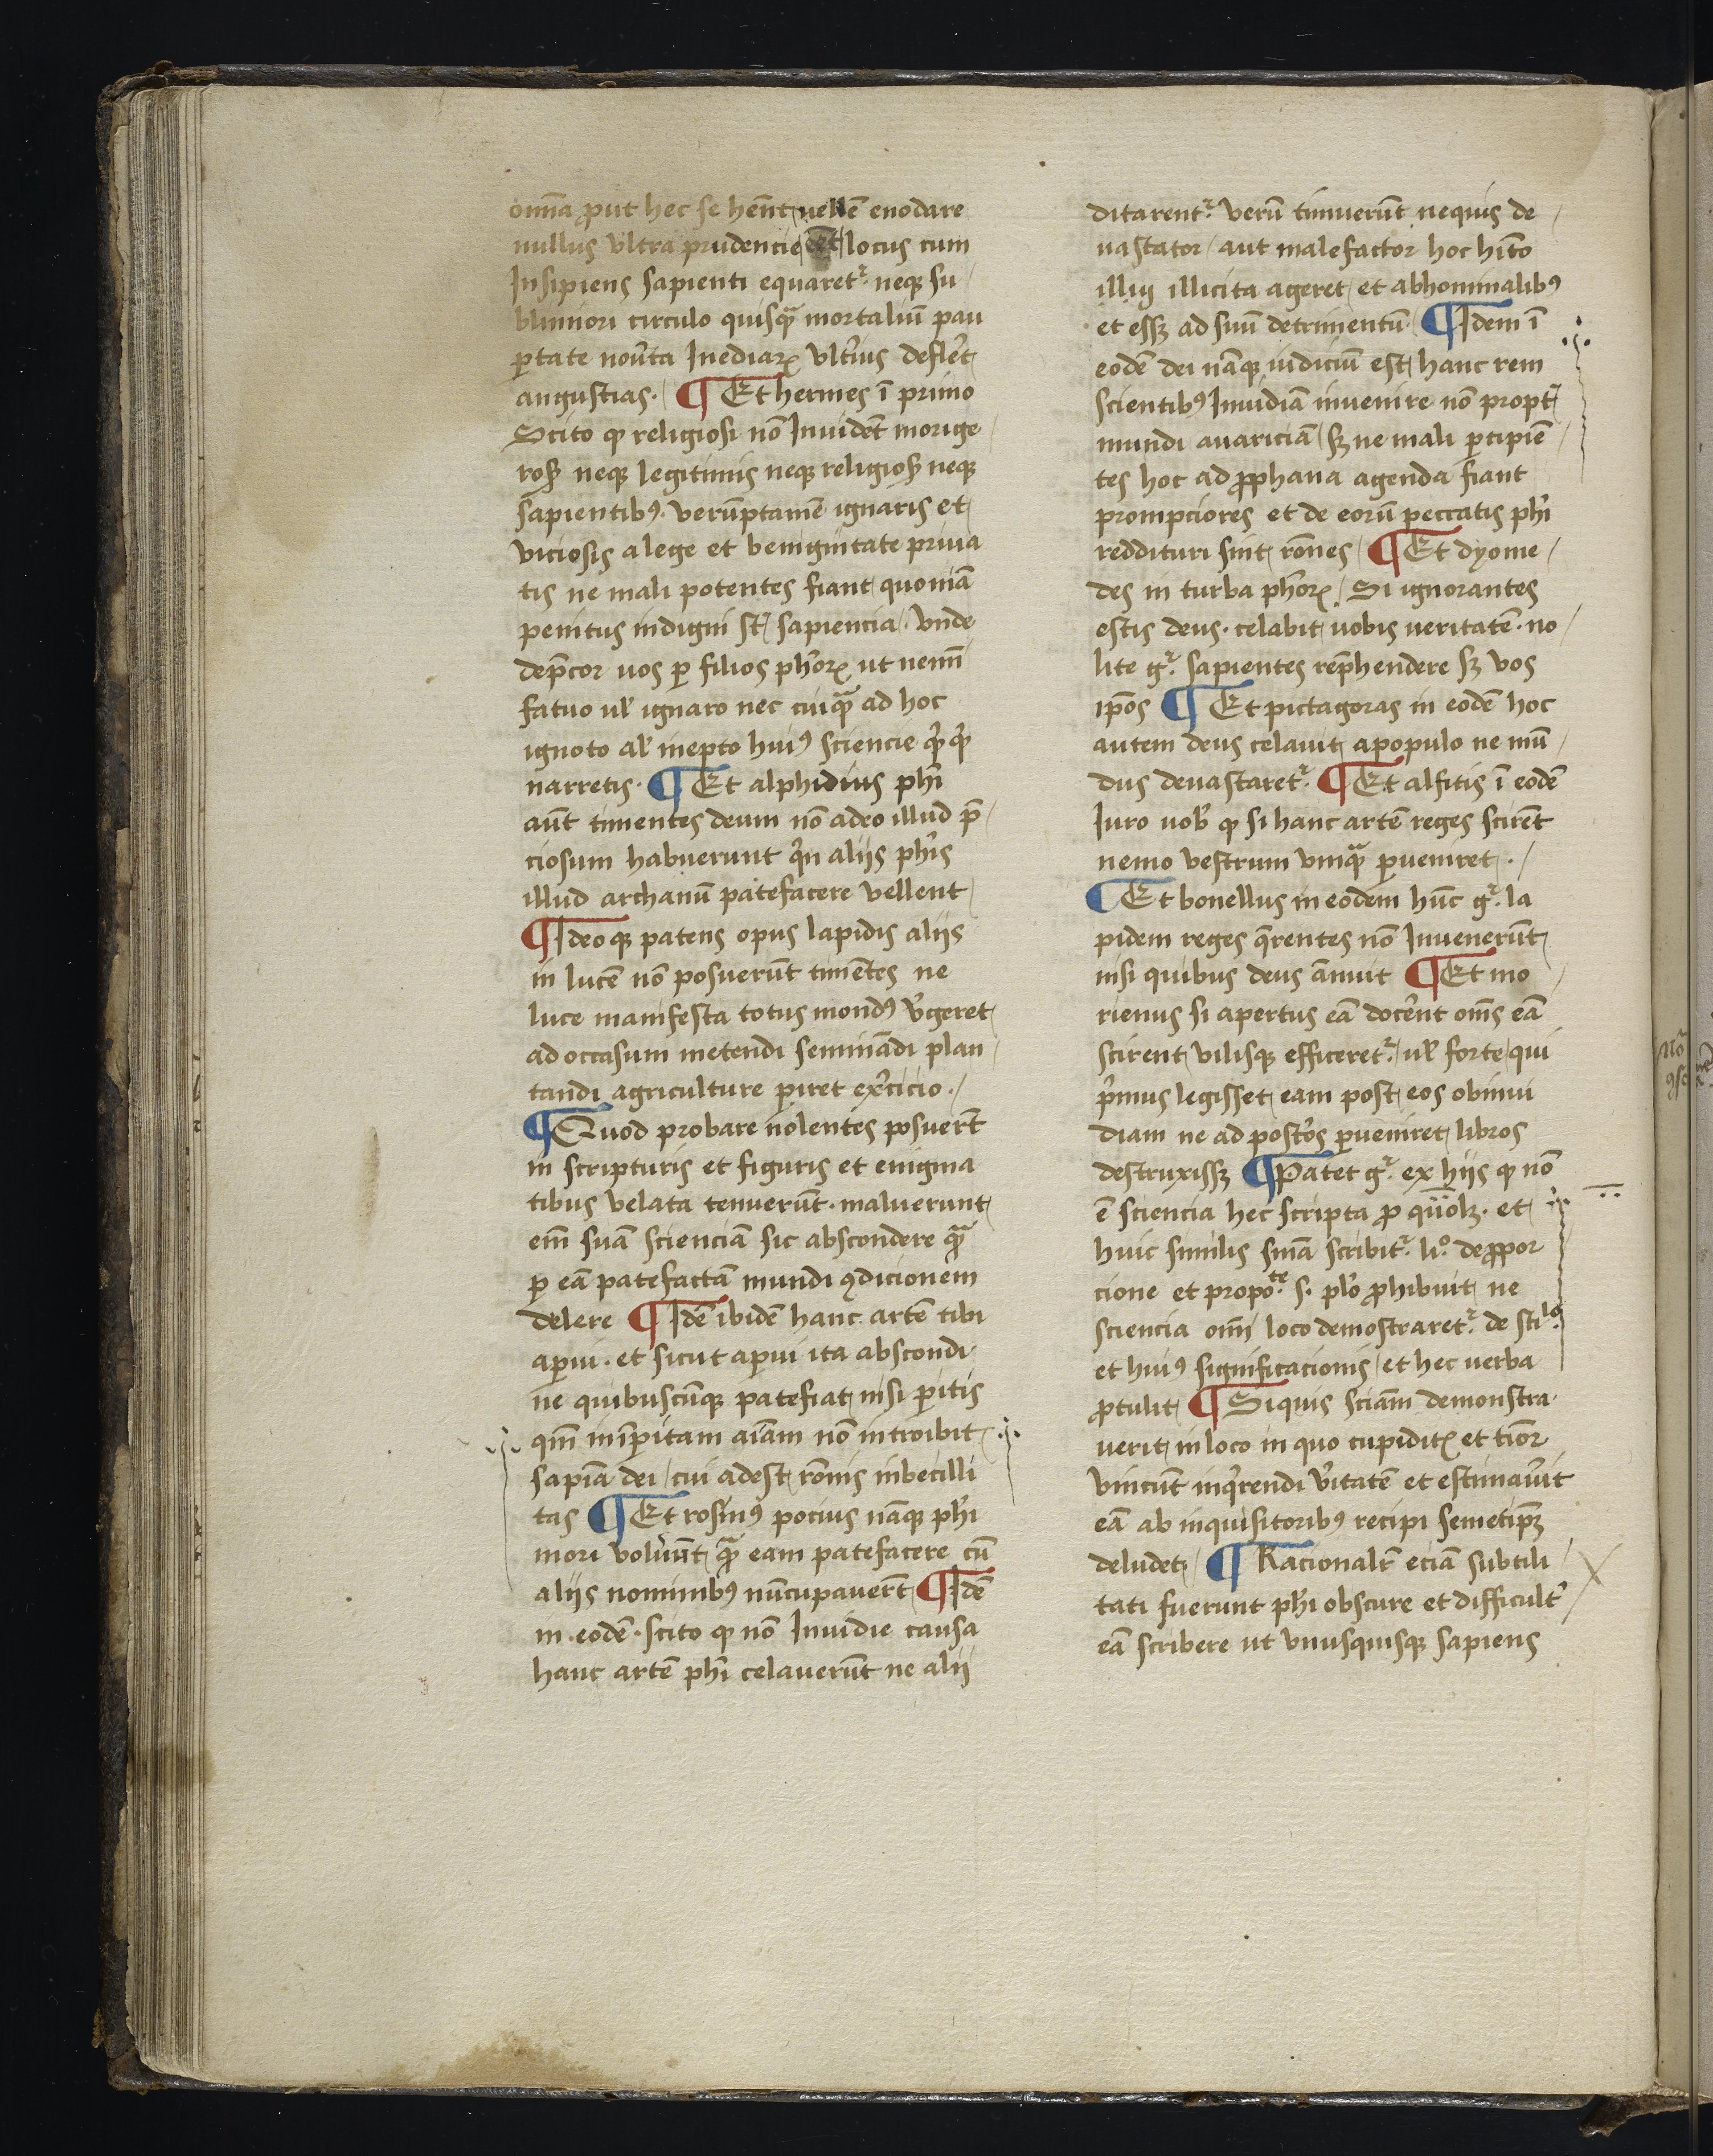 om̄ia ꝓut hec se hēnt vellē enodare
nullus vltra prudencie eēt locus cum
Insipiens sapienti equaret᷑ neqꝫ su
blimiori circulo quisqꝫ mortaliū pau
ꝑtate Inediaꝝ vlt̄ius defle̅t
angustias · ¶ Et hermes ī primo
Scito ꝙ religiosi nō Inuidēt morige
roſꝫ neqꝫ legitimis neqꝫ religioſꝫ neqꝫ
sapientibꝰ · verūptamē ignaris et
viciosis a lege et benignitate priua
tis ne mali potentes fiant quoniā
penitus indigni st̄ sapiencia · vnde
dep̄cor uos ꝑ filios ph̄oꝝ ut nem̄
fatuo ul̓ ignaro nec cuiqꝫ ad hoc
ignoto al̓ inepto huiꝰ sciencie
narretis · ¶ Et alphidius ph̄i
aūt timentes deum nō adeo illud p̄
ciosum habuerunt qͥn aliis ph̄is
illud archanū patefacere vellent
¶ Ideoqꝫ patens opus lapidis aliis
in lucē nō posuerūt timētes ne
luce manifesta totus mondꝰ v̓geret
ad occasum metendi seminādi plan
tandi agriculture ꝑiret ex̓cicio ·
¶ Quod probare nolentes posuer̄t
in scripturis et figuris et enigma
tibus velata tenuerūt · maluerunt
em̄ suā scienciā sic abscondere qᷓ
ꝑ eā patefactā mundi ꝯdicionem
delere ¶ Idē ibidē hanc artē tibi
aꝑui · et sicut aꝑui ita abscondi
ne quibuscūqꝫ patefiat nisi ꝑitis
qm̄ inīꝑitam aīam nō introibit
sapiā dei cui adest rōnis inbecilli
tas ¶ Et rosinꝰ pocius nāqꝫ ph̄i
mori volūnt qᷓ eam patefacere cū
aliis nominibꝰ nūcupauer̄t ¶ Idē
in · eodē · scito ꝙ nō Inuidie causa
hanc artē ph̄i celauerūt ne alii
ditarent᷑ · verū timuerūt nequis de
uastator aut malefactor hoc hīto
illiꝫ illicita ageret et abhominalibꝰ
et essꝫ ad suū detrimentū · ¶ Idem ī
eodē dei nāqꝫ iudiciū est hanc rem
scientibꝰ Inuidiā inuenire nō propt̄
mundi auariciā sꝫ ne mali ꝑcipiē
tes hoc ad ꝓphana agenda fiant
prompciores et de eorū peccatis ph̄i
reddituri sint rōnes ¶ Et dyome
des in turba ph̄oꝝ · Si ignorantes
estis deus · celabit uobis ueritatē · no
lite gͬ · sapientes rep̄hendere sꝫ vos
ip̄os ¶ Et pictagoras in eodē hoc
autem deus celauit a populo ne mū
dus deuastaret᷑ ¶ Et alfitis ī eodē
Iuro uob̓ ꝙ si hanc artē reges scirēt
nemo vestrum vnqᷓ ꝑueniret ·
¶ Et bonellus in eodem hūc gͬ · la
pidem reges q̄rentes nō Inuenerūt
nisi quibus deus ānuit ¶ Et mo
rienus si apertus eā doce̅nt om̄s eā
scirent vilisqꝫ efficeret᷑ · ul̓ forte qui
pͥmus legisset eam post eos ob inui
diam ne ad post̓os ꝑueniret libros
destruxissꝫ ¶ Patet gͬ · ex hiis ꝙ nō
ē sciencia hec scripta ꝓ qūolꝫ · et
huic similis sīnā scribit᷑ · liº · de ꝓpor
cione et propoᵗᵉ · s · plō ꝓhibuit ne
sciencia om̄i loco demostraret᷑ · de stiˡº
et huiꝰ significacionis et hec uerba
ꝓtulit ¶ Siquis sciā̄m demonstra
uerit in loco in quo cupiditꝫ et tīor
vincūt inq̄rendi v̓itatē et estimau̓it
eā ab inquisitoribꝰ recipi semetipꝫ
deludet · ¶ Racionalr̄ eciā subtili
tati fuerunt ph̄i obscure et difficult̓
eā scribere ut vnusquisqꝫ sapiens